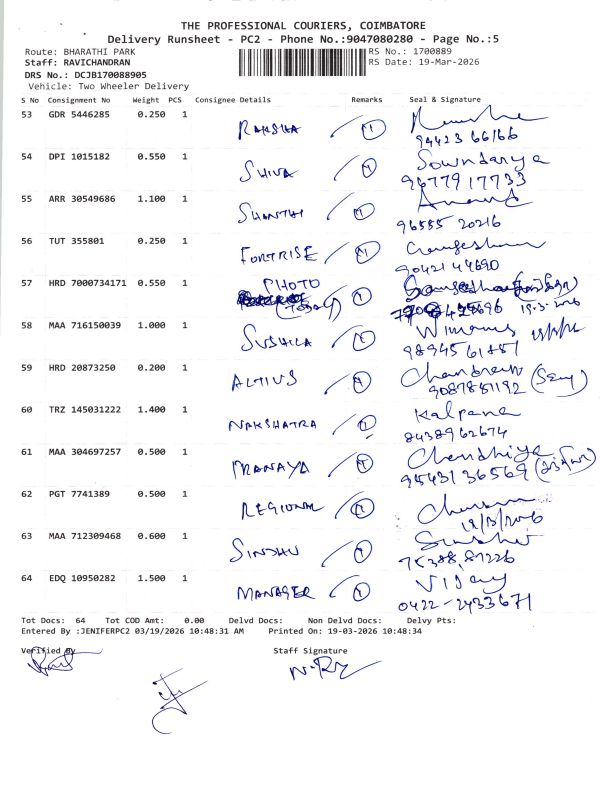 THE PROFESSIONAL COURIERS, COIMBATORE
Delivery Runsheet - PC2 - Phone No.:9047080280 - Page No.:5
Route: BHARATHI PARK RS No.: 1700889
Staff: RAVICHANDRAN RS Date: 19-Mar-2026
DRS No.: DCJB170088905
Vehicle: Two Wheeler Delivery
S No Consignment No Weight PCS Consignee Details Remarks Seal & Signature
53 GDR 5446285 0.250 1
RAKSHA
94423 66166
54 DPI 1015182 0.550 1 Sowndarya
SHIVA 96779 17733
55 ARR 30549686 1.100 1 Anand
SHANTHI 96555 20216
56 TUT 355801 0.250 1
FORTRISE 90421 44690
57 HRD 7000734171 0.550 1 PHOTO
19.3.2026
58 MAA 716150039 1.000 1
SUSHILA 98945 61857
59 HRD 20873250 0.200 1
ALTIUS 9087881192
60 TRZ 145031222 1.400 1 Kalpana
NAKSHATRA 8438962674
61 MAA 304697257 0.500 1
PRANAYA 95431 36569
62 PGT 7741389 0.500 1
REGIONAL
63 MAA 712309468 0.600 1
SINDHU
64 EDQ 10950282 1.500 1 Vijay
MANAGER 0422-2433671
Tot Docs: 64 Tot COD Amt: 0.00 Delvd Docs: Non Delvd Docs: Delvy Pts:
Entered By :JENIFERPC2 03/19/2026 10:48:31 AM Printed On: 19-03-2026 10:48:34
Verified By Staff Signature